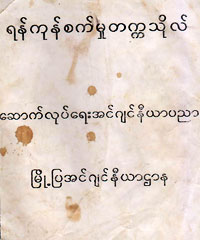 ရန်ကုန်စက်မှုတက္ကသိုလ်
ဆောက်လုပ်ရေးအင်ဂျင်နီယာပညာ
မြို့ပြအင်ဂျင်နီယာဌာန